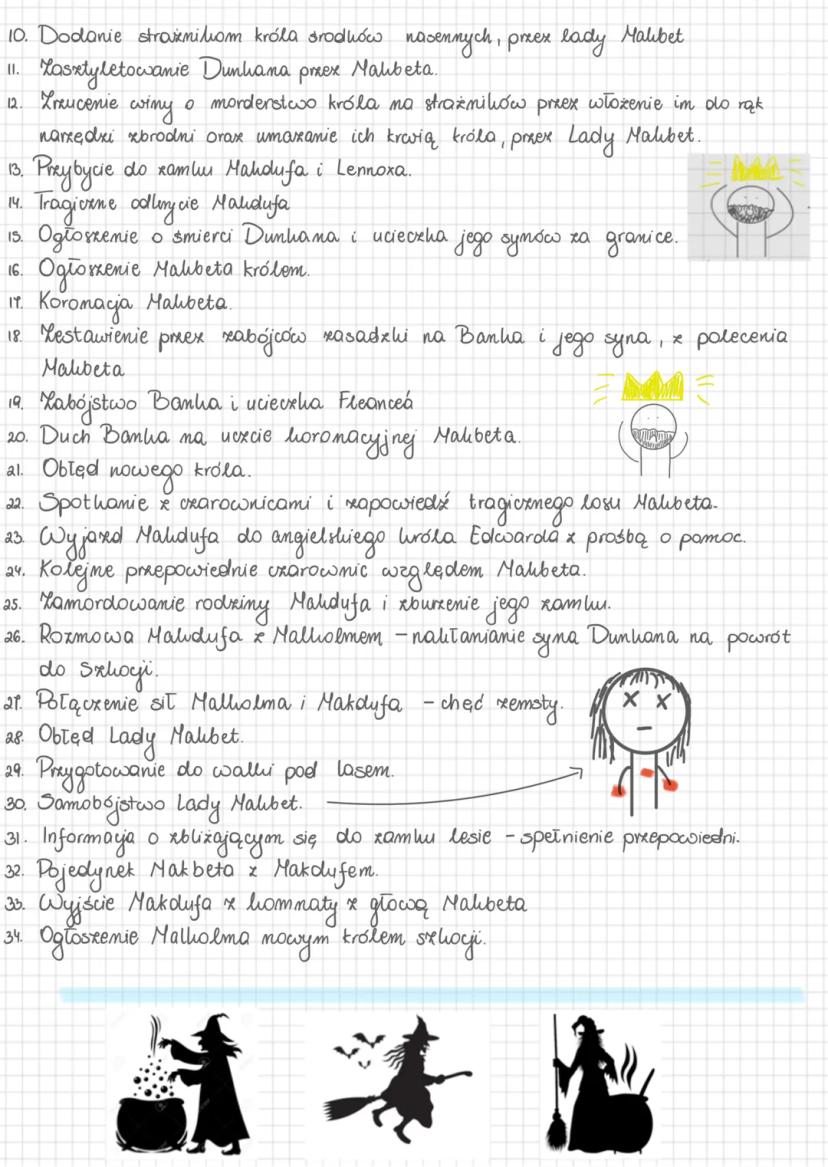 10. Dodanie strażnikom króla środków nasennych, przez lady Makbet
11. Zasztyletowanie Dunkana przez Makbeta.
12. Zrzucenie winy o morderstwo króla na strażników przez włożenie im do rąk
narzędzi zbrodni oraz umazanie ich krwią króla, przez Lady Makbet.
13. Przybycie do zamku Makdufa i Lennoxa.
14. Tragiczne odkrycie Makdufa
15. Ogłoszenie o śmierci Dunkana i ucieczka jego synów za granice.
16. Ogłoszenie Makbeta królem.
17. Koronacja Makbeta.
18. Zestawienie przez zabójców zasadzki na Banka i jego syna, z polecenia
Makbeta
19. Zabójstwo Banka i ucieczka Fleance'a
20. Duch Banka na uczcie koronacyjnej Makbeta.
21. Obłęd nowego króla.
22. Spotkanie z czarownicami i zapowiedź tragicznego losu Makbeta.
23. Wyjazd Makdufa do angielskiego króla Edwarda z prośbą o pomoc.
24. Kolejne przepowiednie czarownic względem Makbeta.
25. Zamordowanie rodziny Makdufa i zburzenie jego zamku.
26. Rozmowa Makdufa z Malkolmem - nakłanianie syna Dunkana na powrót
do Szkocji.
27. Połączenie sił Malkolma i Makdyfa - chęć zemsty.
28. Obłęd Lady Makbet.
29. Przygotowanie do walki pod lasem.
30. Samobójstwo Lady Makbet.
31. Informacja o zbliżającym się do zamku lesie - spełnienie przepowiedni.
32. Pojedynek Makbeta z Makdyfem.
33. Wyjście Makdufa z komnaty z głową Makbeta
34. Ogłoszenie Malkolma nowym królem szkocji.